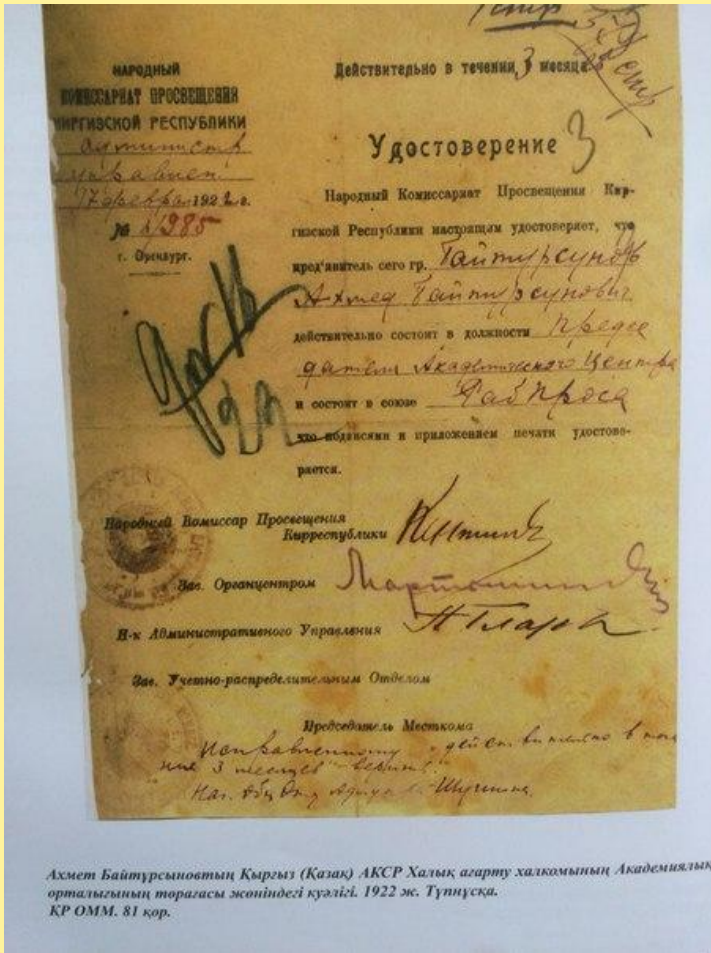 НАРОДНЫЙ
КОМИССАРИАТ ПРОСВЕЩЕНИЯ
КИРГИЗСКОЙ РЕСПУБЛИКИ
17 февра 1922 г.
№ 1985
г. Оренбург.
Действительно в течении 3 месяца
Удостоверение 3
Народный Комиссариат Просвещения Кир-
гизской Республики настоящим удостоверяет, что
пред'явитель сего гр. Байтурсуновъ
Ахмед Байтурсунович
действительно состоит в должности Предсе
дателя Академического Центра
и состоит в союзе Рабпроса
что подписями и приложением печати удостове-
ряется.
Народный Комиссар Просвещения
Кирреспублики
Зав. Органцентром
Н-к Административного Управления
Зав. Учетно-распределительным Отделом
Председатель Месткома
действительно в
3 месяцев
Ахмет Байтұрсыновтың Қырғыз (Қазақ) АКСР Халық ағарту халкомының Академиялық
орталығының төрағасы жөніндегі куәлігі. 1922 ж. Түпнұсқа.
ҚР ОММ. 81 қор.